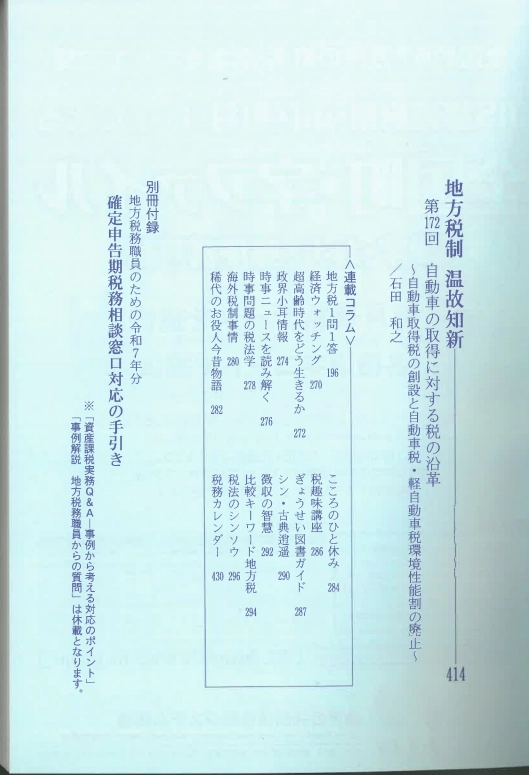 地方税制 温故知新 414
第172回 自動車の取得に対する税の沿革
~自動車取得税の創設と自動車税・軽自動車税環境性能割の廃止~
/石田 和之
<連載コラム>
地方税1問1答 196
経済ウォッチング 270
超高齢時代をどう生きるか 272
政界小耳情報 274
時事ニュースを読み解く 276
時事問題の税法学 278
海外税制事情 280
稀代のお役人今昔物語 282
こころのひと休み 284
税趣味講座 286
ぎょうせい図書ガイド 287
シン・古典逍遥 290
徴収の智慧 292
比較キーワード地方税 294
税法のシンソウ 296
税務カレンダー 430
別冊付録
地方税務職員のための令和7年分
確定申告期税務相談窓口対応の手引き
※「資産課税実務Q&A―事例から考える対応のポイント」
「事例解説 地方税務職員からの質問」は休載となります。